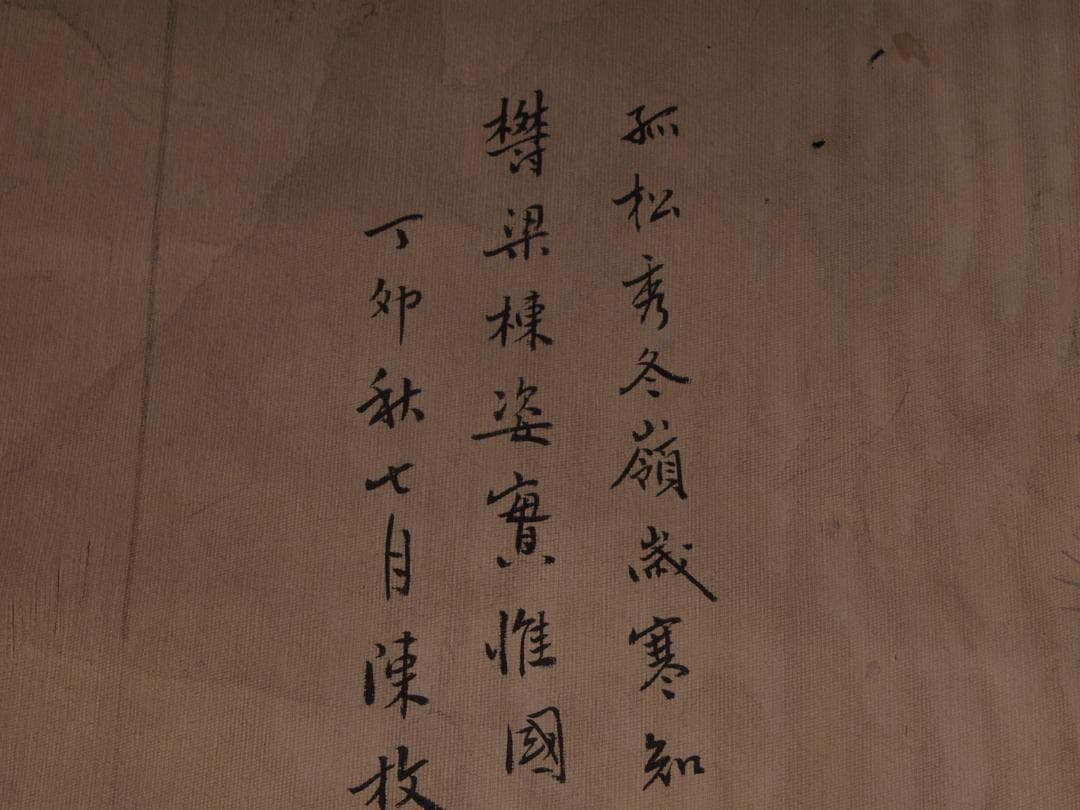 孤松秀冬嶺歲寒知
梁棟姿實惟國
丁卯秋七月陳枚